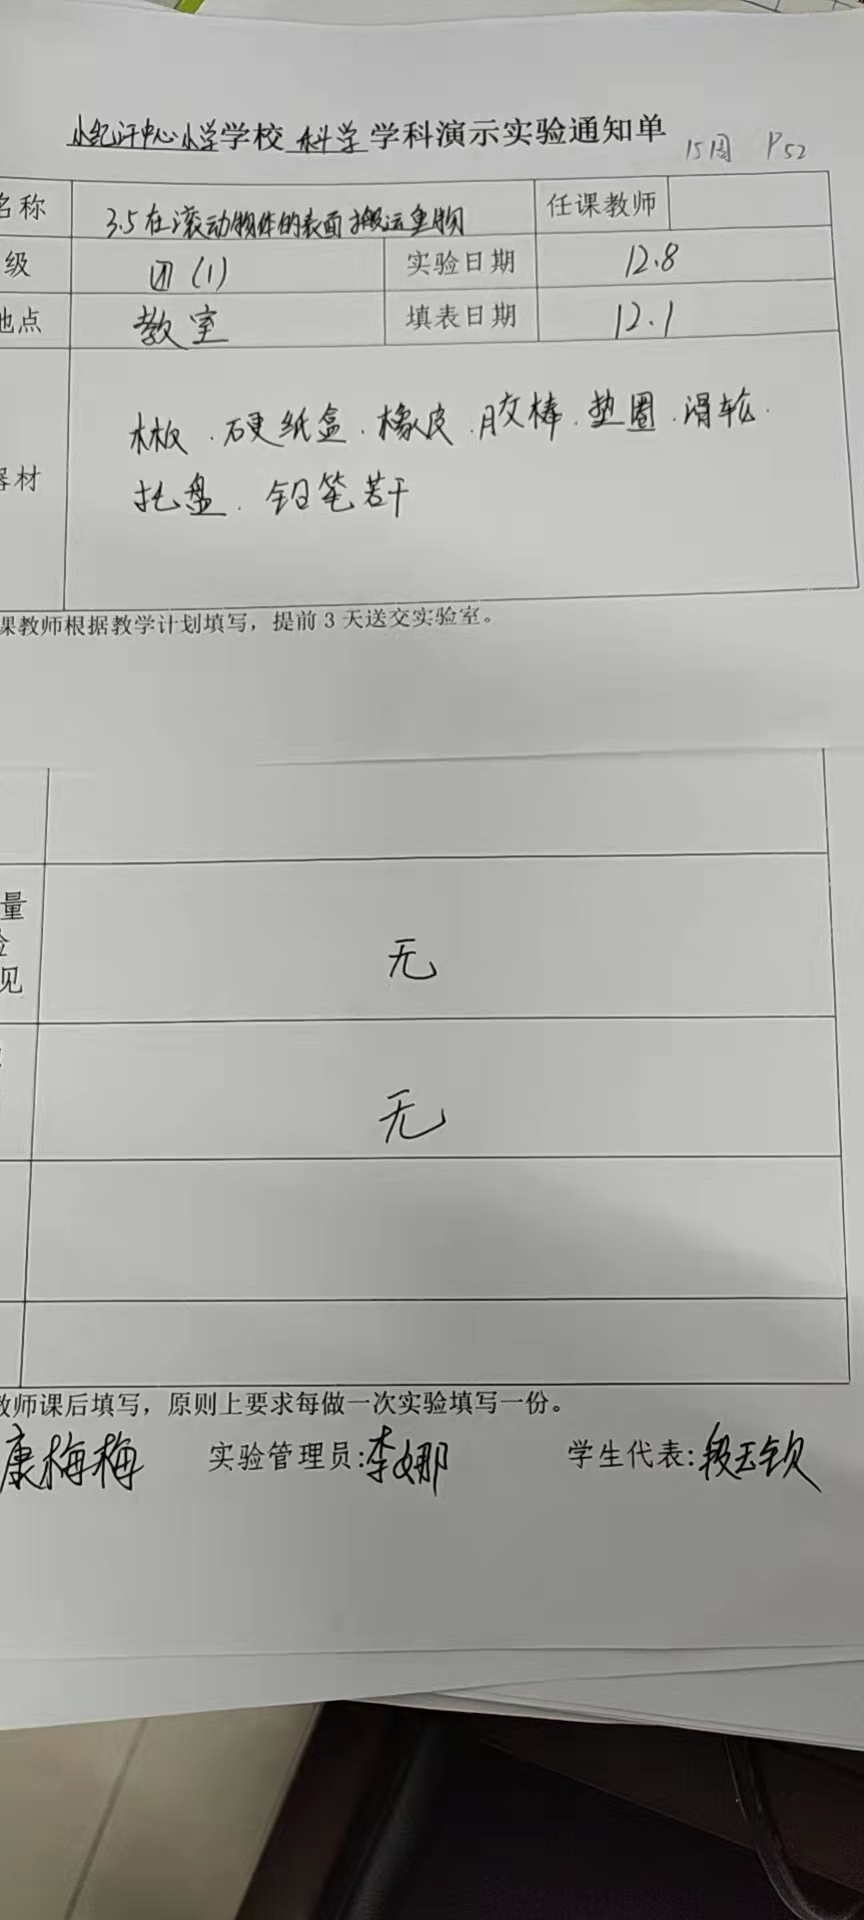 小纪汗中心小学学校 科学 学科演示实验通知单 15周 P52
名称 3.5在滚动物体的表面搬运重物 任课教师
级 四(1) 实验日期 12.8
地点 教室 填表日期 12.1
木板、硬纸盒、橡皮、胶棒、垫圈、滑轮、
器材
托盘、铅笔若干
课教师根据教学计划填写，提前3天送交实验室。
量
验
见
无
无
教师课后填写，原则上要求每做一次实验填写一份。
康梅梅 实验管理员:李娜 学生代表:段玉钦